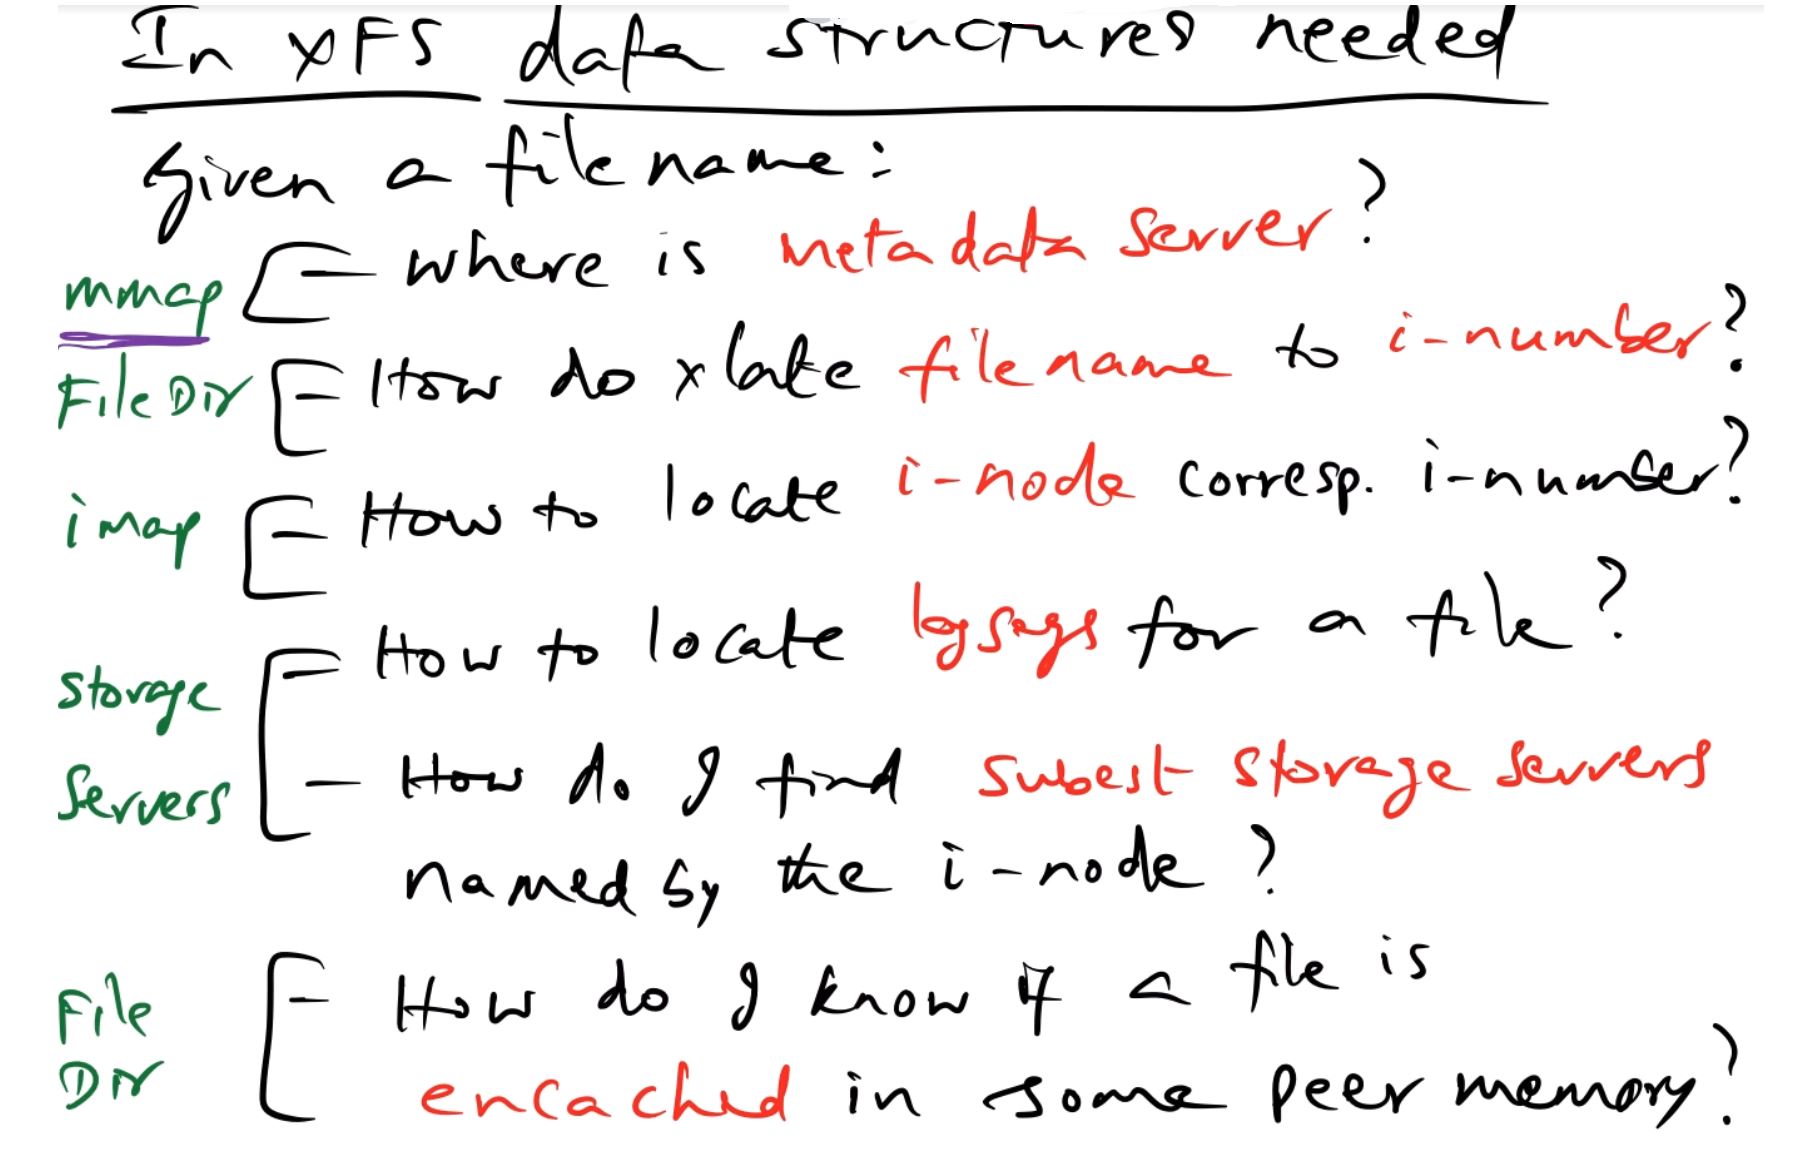 In xFS data structures needed
Given a filename:
mmap - where is metadata server?
FileDir - How do xlate filename to i-number?
imap - How to locate i-node corresp. i-number?
- How to locate logsegs for a file?
Storage
Servers - How do I find subest storage servers
named by the i-node?
File - How do I know if a file is
Dir encached in some peer memory?